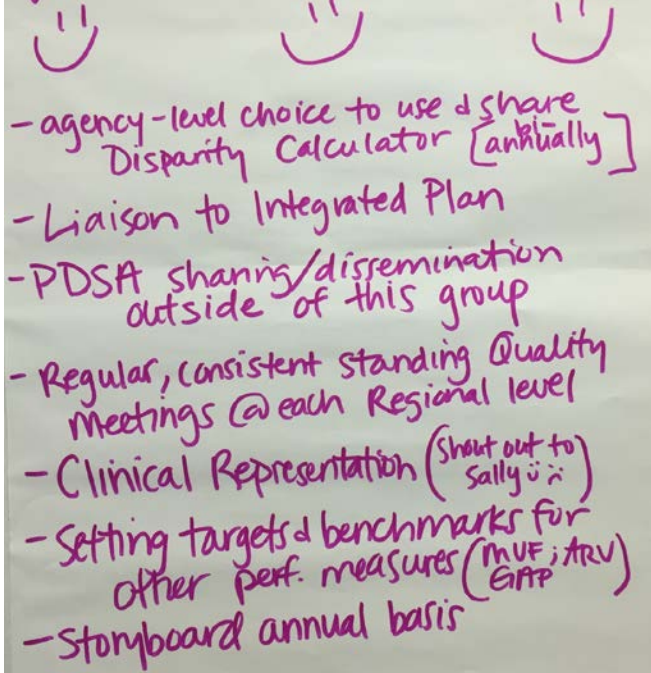 - agency-level choice to use & share
Disparity Calculator [annually]
bi-
- Liaison to Integrated Plan
- PDSA sharing/dissemination
outside of this group
- Regular, consistent standing Quality
Meetings @ each Regional level
- Clinical Representation (Shout out to
Sally ü ü)
- Setting targets & benchmarks for
other perf. measures (MVF; ARV
GAP)
- Storyboard annual basis